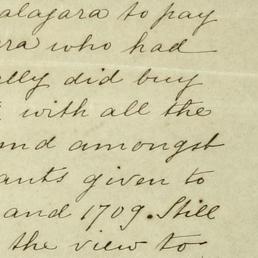 alagara to pay
ra who had
lly did buy
with all the
nd amongst
ants given to
and 1709. Still
the view to